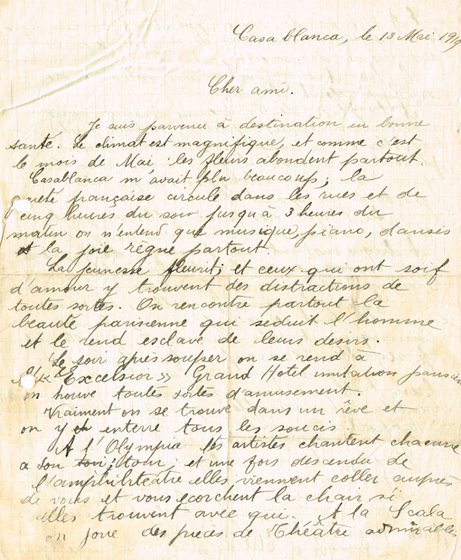 Casablanca, le 13 Mai 191
Cher ami.
Je suis parvenu à destination en bonne
santé. Le climat est magnifique, et comme c'est
le mois de Mai les fleurs abondent partout.
Casablanca m'avait plu beaucoup; la
française circule dans les rues et de
cinq heures du soir jusqu'à 3 heures du
matin on n'entend que musique, piano, danses
et la joie règne partout.
La jeunesse fleurit; et ceux qui ont soif
d'amour y trouvent des distractions de
toutes sortes. On rencontre partout la
beauté parisienne qui séduit l'homme
et le rend esclave de leurs desirs.
Le soir après souper on se rend à
Excelsior » Grand Hotel imitation
on trouve toutes sortes d'amusement.
Vraiment on se trouve dans un rêve et
on y enterre tous les soucis.
A l'Olympia les artistes chantent chacune
a son tour, et une fois descendu de
l'amphitéatre elles viennent coller auprès
de vous et vous écorchent la chair si
elles trouvent avec qui. A la Scala
on joue des pièces de Théâtre admirables